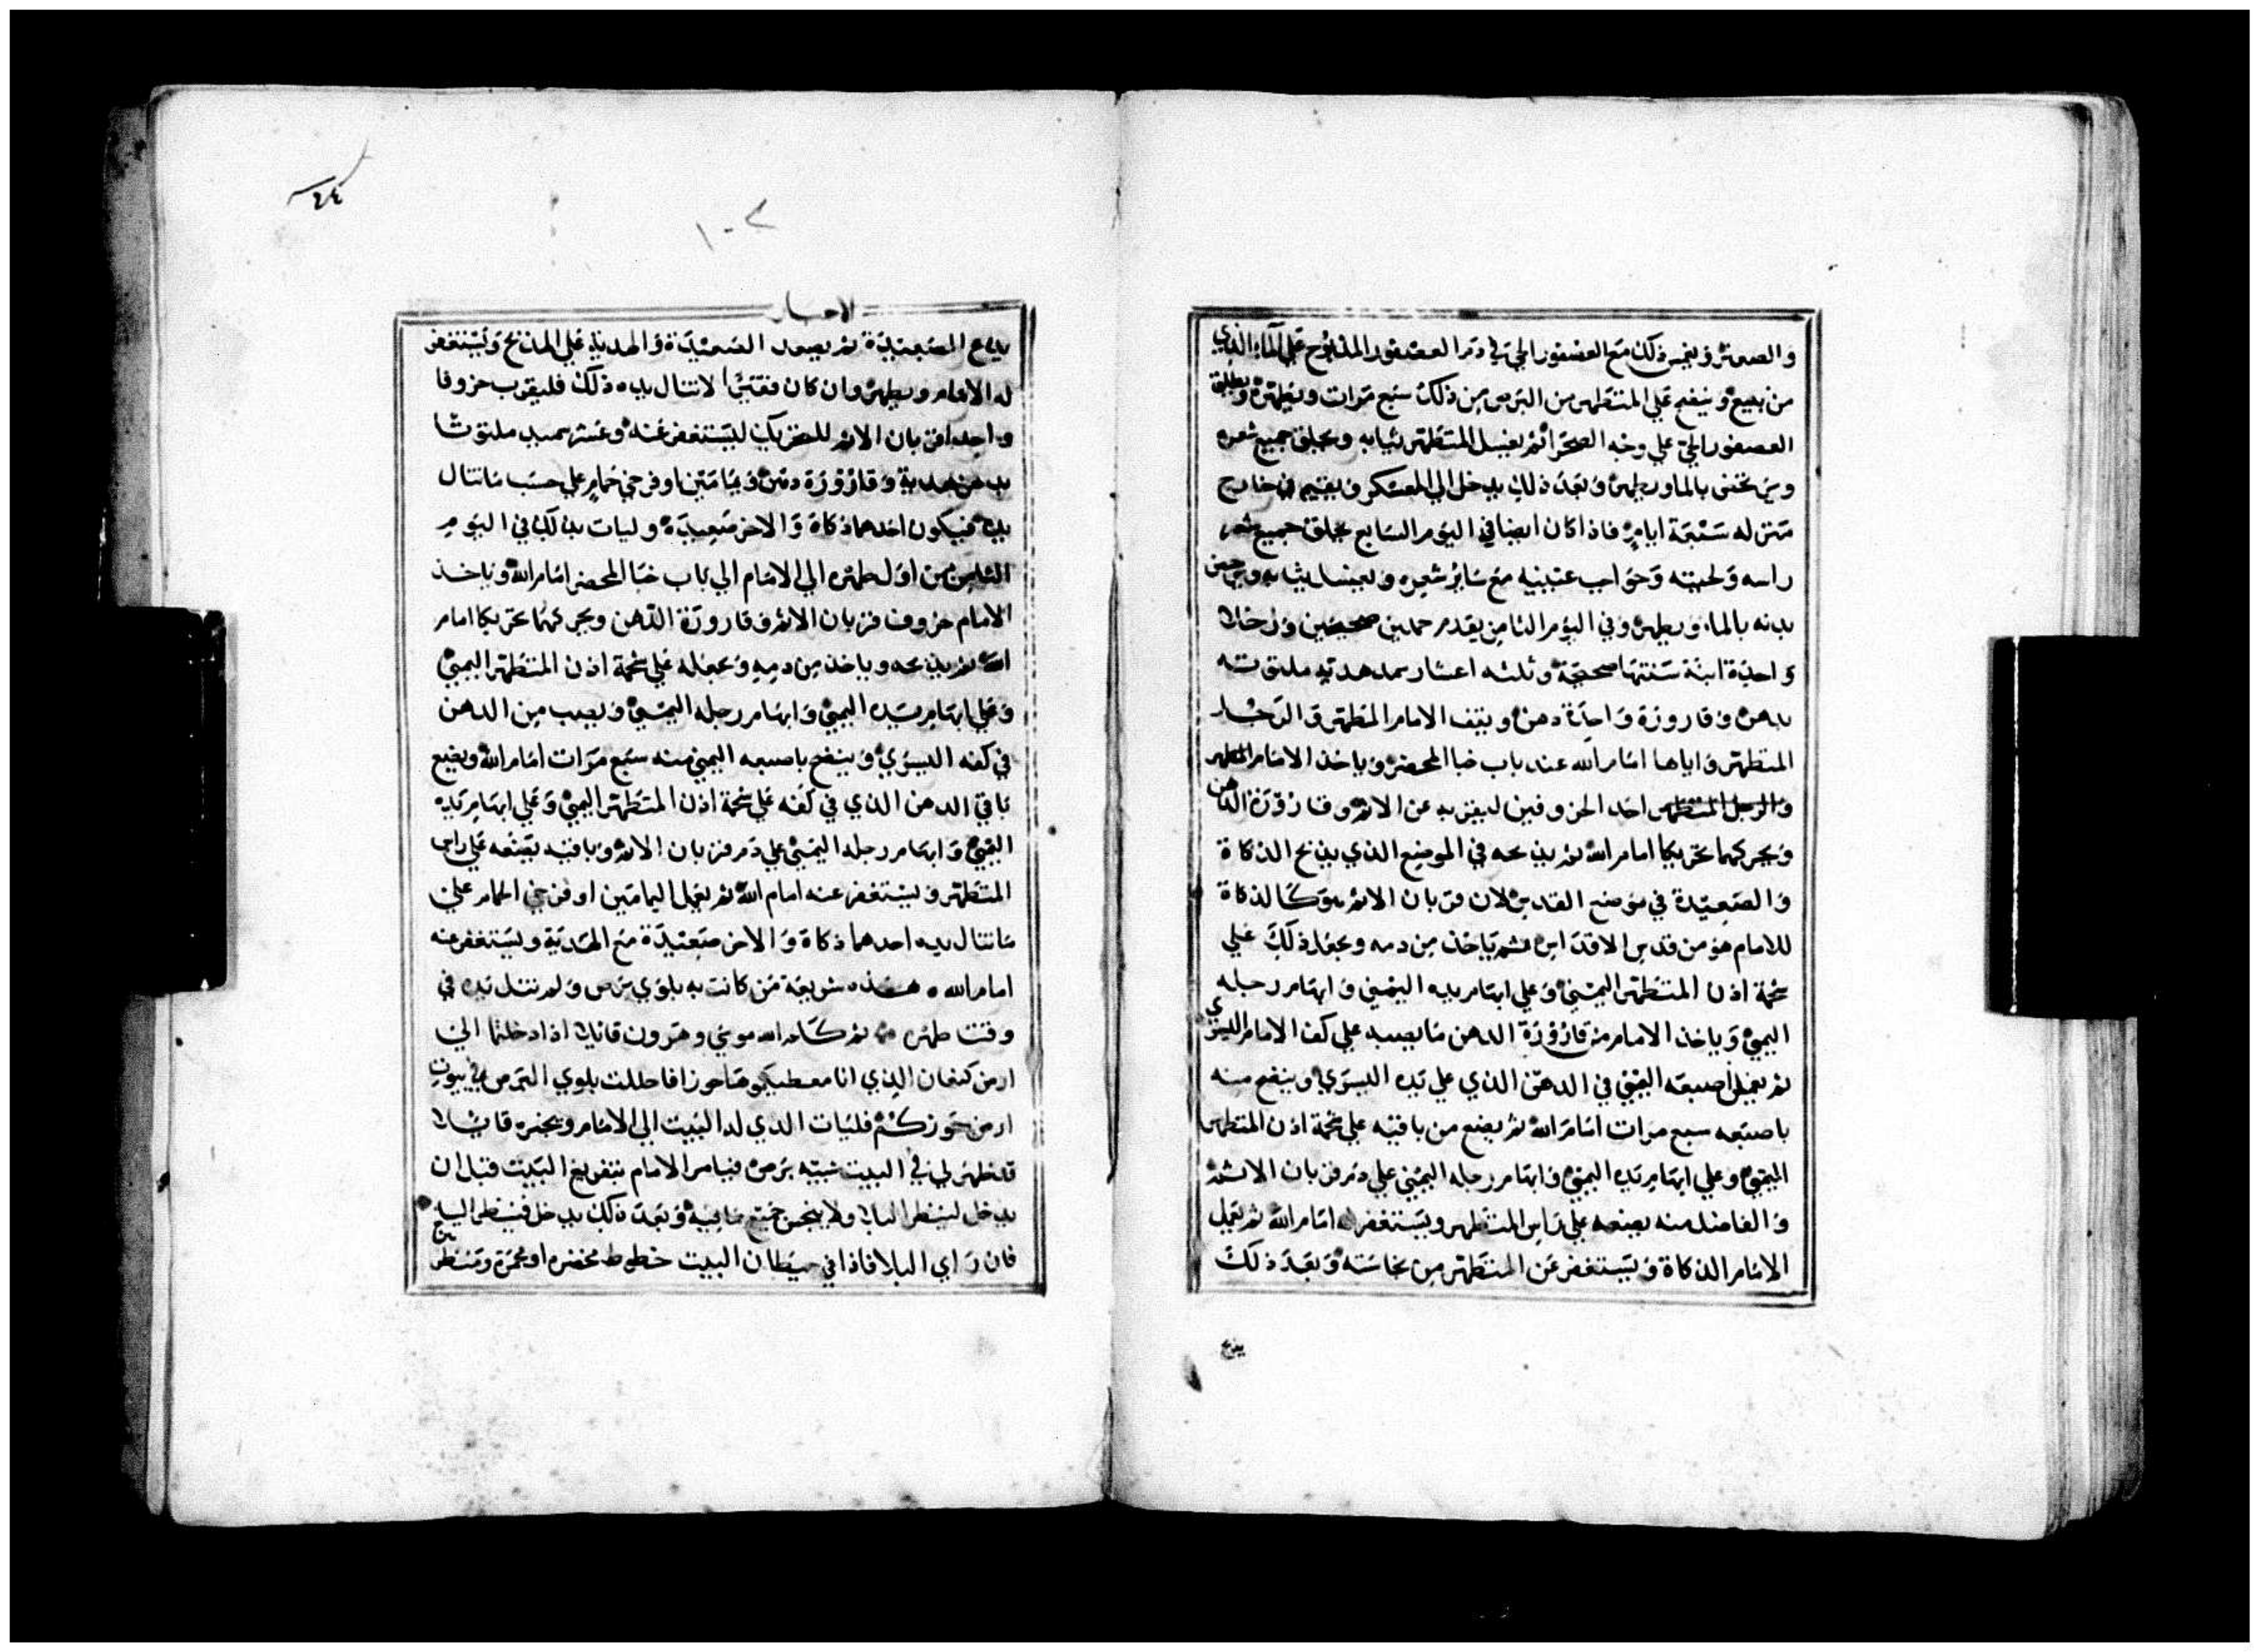 والصعتر ويغمس ذلك مع العصفور الحي في دم العصفور المذبوح علي الماء الذي
من ينبع وينضح علي المتطهر من البرص من ذلك سبع مرات ويطهره ويطلق
العصفور الحي علي وجه الصحرا ثم يغسل المتطهر ثيابه ويحلق جميع شعره
بالما ويطهر وبعد ذلك يدخل الي المعسكر ويقيم في خارج
منزله سبعة ايام فاذا كان ايضا في اليوم السابع يحلق جميع شعر
راسه ولحيته وحواجب عينيه مع ساير شعره ويغسل ثيابه
بدنه بالماء ويطهر وفي اليوم الثامن يقدم حملين صحيحين ورخلا
واحدة ابنة سنتها صحيحة وثلثه اعشار سمد هدية ملتوته
بدهن وقارورة واحدة دهن ويقف الامام المطهر الرجل
المتطهر واياها امام الله عند باب خبا المحضر وياخذ الامام المطهر
والرجل المتطهر احد الخروفين ليقربه عن الاثم وقارورة الدهن
ويحركهما تحريكا امام الله ثم يذبحه في الموضع الذي يذبح الذكاة
والصعيدة في موضع القدس لان قربان الاثم هو كالذكاة
للامام هو من قدس الاقداس ثم ياخذ من دمه ويجعل ذلك علي
شحمة اذن المتطهر اليمني وعلي ابهام يده اليمني وابهام رجله
اليمني وياخذ الامام من قارورة الدهن ما يصبه علي كف الامام اليسري
ثم يغمس اصبعه اليمني في الدهن الذي علي يده اليسري وينضح منه
باصبعه سبع مرات امام الله ثم يضع من باقيه علي شحمة اذن المتطهر
اليمني وعلي ابهام يده اليمني وابهام رجله اليمني علي دم قربان الاثم
والفاضل منه يضعه علي راس المتطهر ويستغفر له امام الله ثم يعمل
الامام الذكاة ويستغفر عن المتطهر من نجاسته وبعد ذلك
يذبح
٤٤
١٠٢
الاحبار
يذبح الصعيدة ثم يصعد الصعيدة والهدية علي المذبح ويستغفر
له الامام ويطهر وان كان فقيرا لاتنال يده ذلك فليقرب خروفا
واحدا قربان الاثم للتحريك ليستغفر عنه وعشر سميد ملتوتا
بدهن هدية وقارورة دهن ويمامتين او فرخي حمام علي حسب ماتنال
يده فيكون احدهما ذكاة والاخر صعيدة وليات بذلك في اليوم
الثامن من اول طهره الي الامام الي باب خبا المحضر امام الله وياخذ
الامام خروف قربان الاثم وقارورة الدهن ويحركهما تحريكا امام
الله ثم يذبحه وياخذ من دمه ويجعله علي شحمة اذن المتطهر اليمني
وعلي ابهام يده اليمني وابهام رجله اليمني ويصب من الدهن
في كفه اليسري وينضح باصبعه اليمني منه سبع مرات امام الله ويضع
باقي الدهن الذي في كفه علي شحمة اذن المتطهر اليمني وعلي ابهام يده
اليمني وابهام رجله اليمني علي دم قربان الاثم وباقيه يضعه علي راس
المتطهر ويستغفر عنه امام الله ثم يعمل اليمامتين او فرخي الحمام علي
ماتنال يده احدهما ذكاة والاخر صعيدة مع الهدية ويستغفر عنه
امام الله ه هذه شريعة من كانت به بلوي برص ولم تنل يده في
وقت طهره ثم كلم الله موسي وهرون قائلا اذا دخلتما الي
ارض كنعان الذي انا معطيكموها حوزا فاحللت بلوي البرص في بيوت
ارض حوزكم فليات الذي له البيت الي الامام ويخبره قائلا
قد ظهر لي في البيت شبيه برص فيامر الامام بتفريغ البيت قبل ان
يدخل لينظر البلا ولا ينجس جميع مافيه وبعد ذلك يدخل فينظر البيت
فان راي البلا فاذا في حيطان البيت خطوط مخضره او محمرة ومنظر